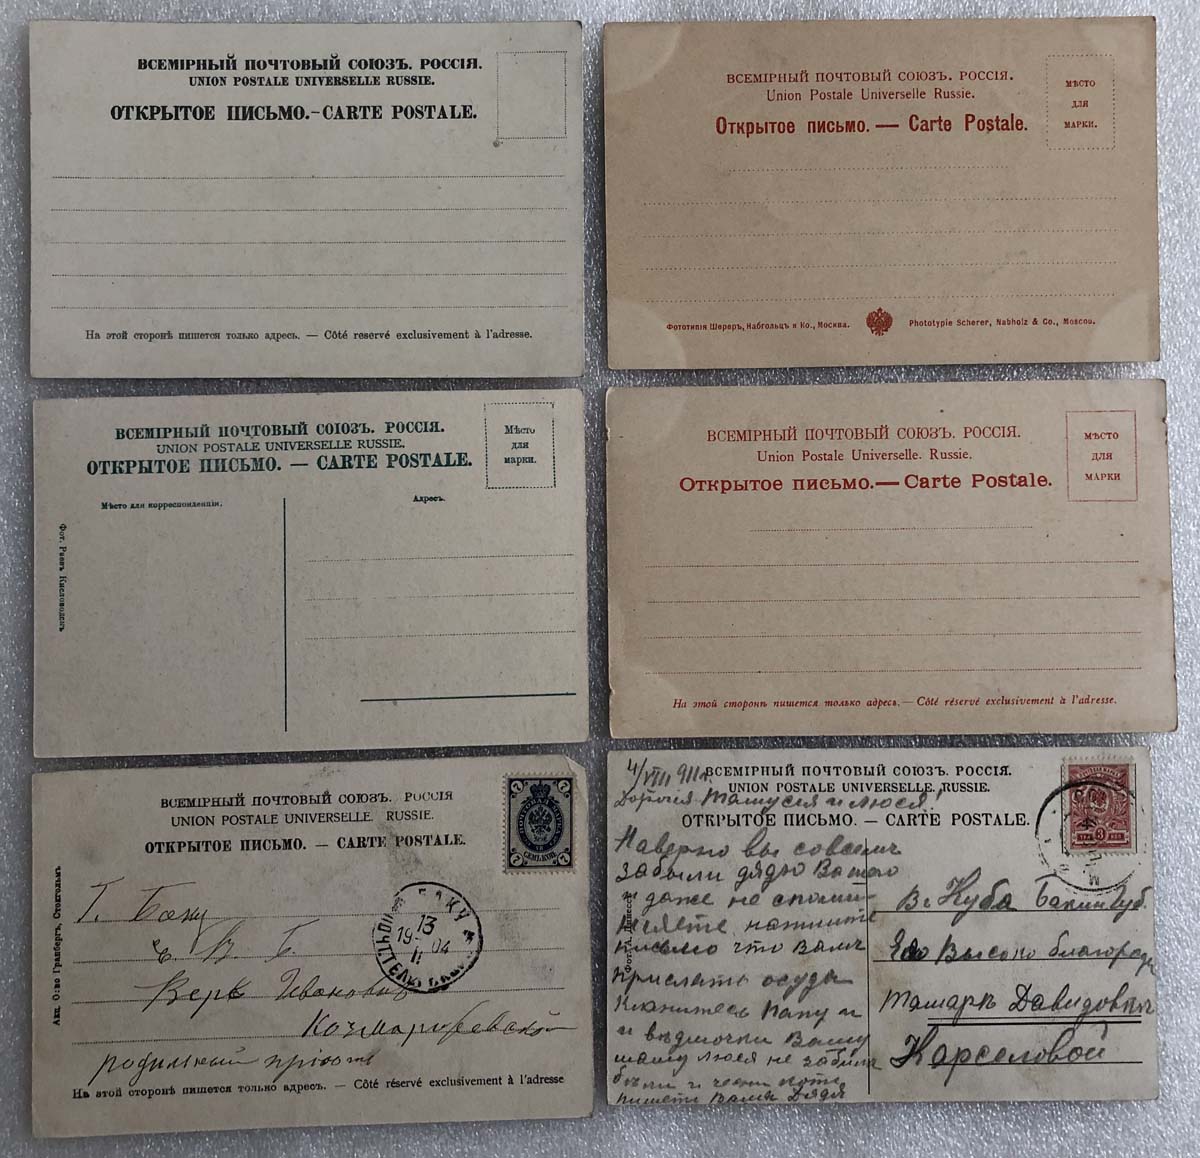 ВСЕМІРНЫЙ ПОЧТОВЫЙ СОЮЗЪ. РОССІЯ.
UNION POSTALE UNIVERSELLE RUSSIE.
ОТКРЫТОЕ ПИСЬМО.-CARTE POSTALE.
На этой сторонѣ пишется только адресъ. — Côté reservé exclusivement à l'adresse.
ВСЕМІРНЫЙ ПОЧТОВЫЙ СОЮЗЪ. РОССІЯ.
Union Postale Universelle Russie.
Открытое письмо. — Carte Postale.
МѢСТО
ДЛЯ
МАРКИ.
Фототипія Шереръ, Набгольцъ и Ко., Москва.
Phototypie Scherer, Nabholz & Co., Moscou.
ВСЕМІРНЫЙ ПОЧТОВЫЙ СОЮЗЪ. РОССІЯ.
UNION POSTALE UNIVERSELLE RUSSIE.
ОТКРЫТОЕ ПИСЬМО. — CARTE POSTALE.
Мѣсто
для
марки.
Мѣсто для корреспонденціи.
Адресъ.
Фот. Раевъ Кисловодскъ
ВСЕМІРНЫЙ ПОЧТОВЫЙ СОЮЗЪ. РОССІЯ.
Union Postale Universelle. Russie.
Открытое письмо.— Carte Postale.
МѢСТО
ДЛЯ
МАРКИ
На этой сторонѣ пишется только адресъ. — Côté réservé exclusivement à l'adresse.
ВСЕМІРНЫЙ ПОЧТОВЫЙ СОЮЗЪ. РОССІЯ
UNION POSTALE UNIVERSELLE. RUSSIE.
ОТКРЫТОЕ ПИСЬМО. — CARTE POSTALE.
7 7
ПОЧТОВАЯ МАРКА
СЕМЬ КОП.
7 7
БАКУ
13
19 04
II
Г. Баку
В. Б.
Вере Ивановне
родильный приютъ
На этой сторонѣ пишется только адресъ. — Côté réservé exclusivement à l'adresse
Акц. О-во Гранбергъ, Стокгольмъ.
4/VIII 911 г.
ВСЕМІРНЫЙ ПОЧТОВЫЙ СОЮЗЪ. РОССІЯ.
UNION POSTALE UNIVERSELLE. RUSSIE.
Дорогія Тамуся и Люся!
ОТКРЫТОЕ ПИСЬМО. — CARTE POSTALE.
3
Наверно вы совсемъ
забыли дядю Вашего
и даже не вспоми-
наете напишите
письмо что Вамъ
прислать осуда
кланяйтесь Папу и
Вг. Куба Бакин Губ.
Его Высокоблагород
Тамаръ Давидовнъ
Карселовой